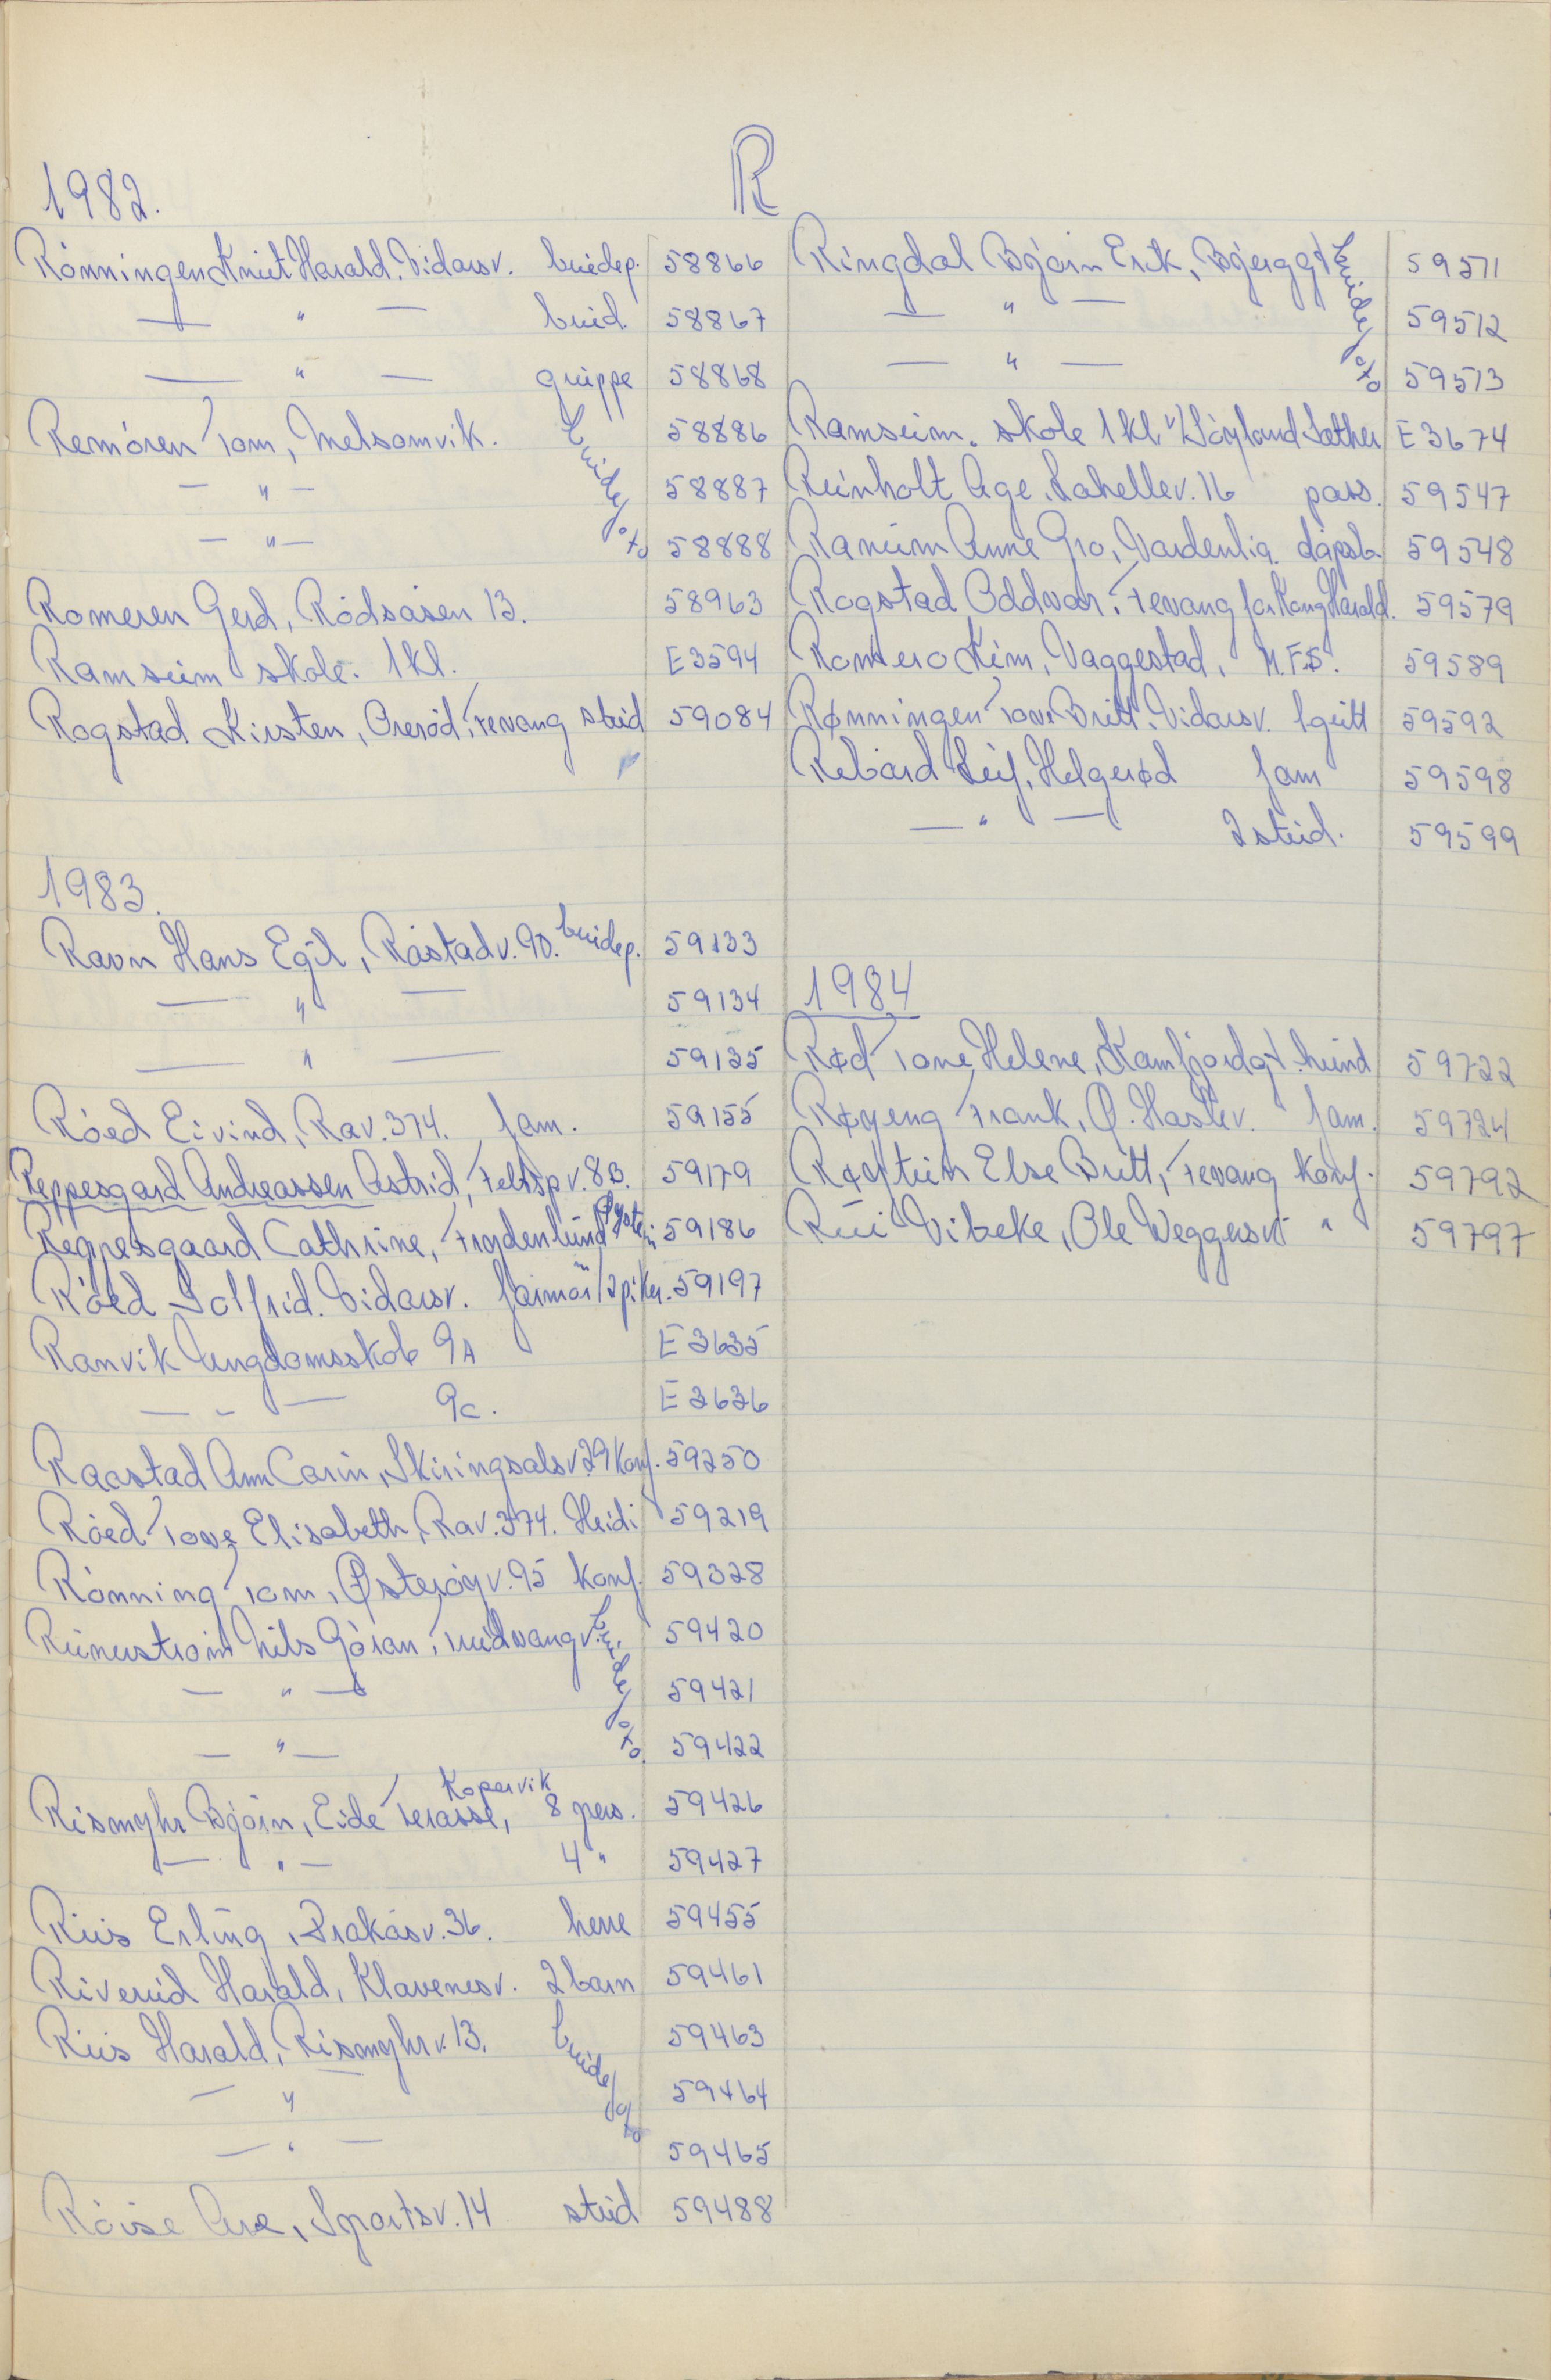 R
1982.
Rönningen Knut Harald. Vidarsv. brudep. 58866
— " — brud. 58867
— " — gruppe 58868
Remören Tom, Melsomvik. brudefoto 58886
— " — 58887
— " — 58888
Romeren Gerd, Rödsåsen 13. 58963
Ramsum skole. 1 kl. E3594
Rogstad Kirsten, Oreröd, Tevang stud 59084
1983.
Ravn Hans Egil, Råstadv. 90. brudep. 59133
— " — 59134
— " — 59135
Röed Eivind, Rav. 374. fam. 59155
Reppesgard Andreassen Astrid, Feltsp v. 8B. 59179
Reppesgaard Cathrine, Frydenlund 59186
Röed Solfrid. Vidarsv. 59197
Ranvik Ungdomsskole 9A E3635
— " — 9c. E3636
Raastad Ann Carin, Skiringsalsv. 29 konf. 59250
Röed Tove Elisabeth, Rav. 374. Heidi 59219
Rönning Tom, Østeröyv. 95 konf. 59328
Runerström Nils Göran, brudefoto 59420
— " — 59421
— " — 59422
Rismyhr Björn, Eide Terasse, Kopervik 8 pers. 59426
— " — 4 " 59427
Riis Erling, Brakåsv. 36. herre 59455
Riverud Harald, Klavenesv. 2 barn 59461
Riis Harald, Rismyhrv. 13. brudefoto 59463
— " 59464
— " — 59465
Röise Are, Sportsv. 14 stud 59488
Ringdal Björn Erik, Bjerggt brudefoto 59511
— " — 59512
— " — 59513
Ramsum. skole 1 kl. v/Höyland Sæther E3674
Reinholt Åge, Lahellev. 16 pass. 59547
Ranum Anne Gro, Vardenlia. dåpsb. 59548
Rogstad Oddvar. Tevang for Kong Harald. 59579
Romero Kim, Vaggestad, M.F.S. 59589
Rønningen Tove Britt. Vidarsv. 1 gutt 59592
Rebård Leif, Helgerød fam 59598
— " — 2 stud. 59599
1984
Rød Tone Helene, Kamfjordgt. hund 59722
Røyeng Frank, Ø. Haslev. fam. 59724
Else Britt, Tevang konf. 59792
Rui Vibeke, Ole Weggersv " 59797